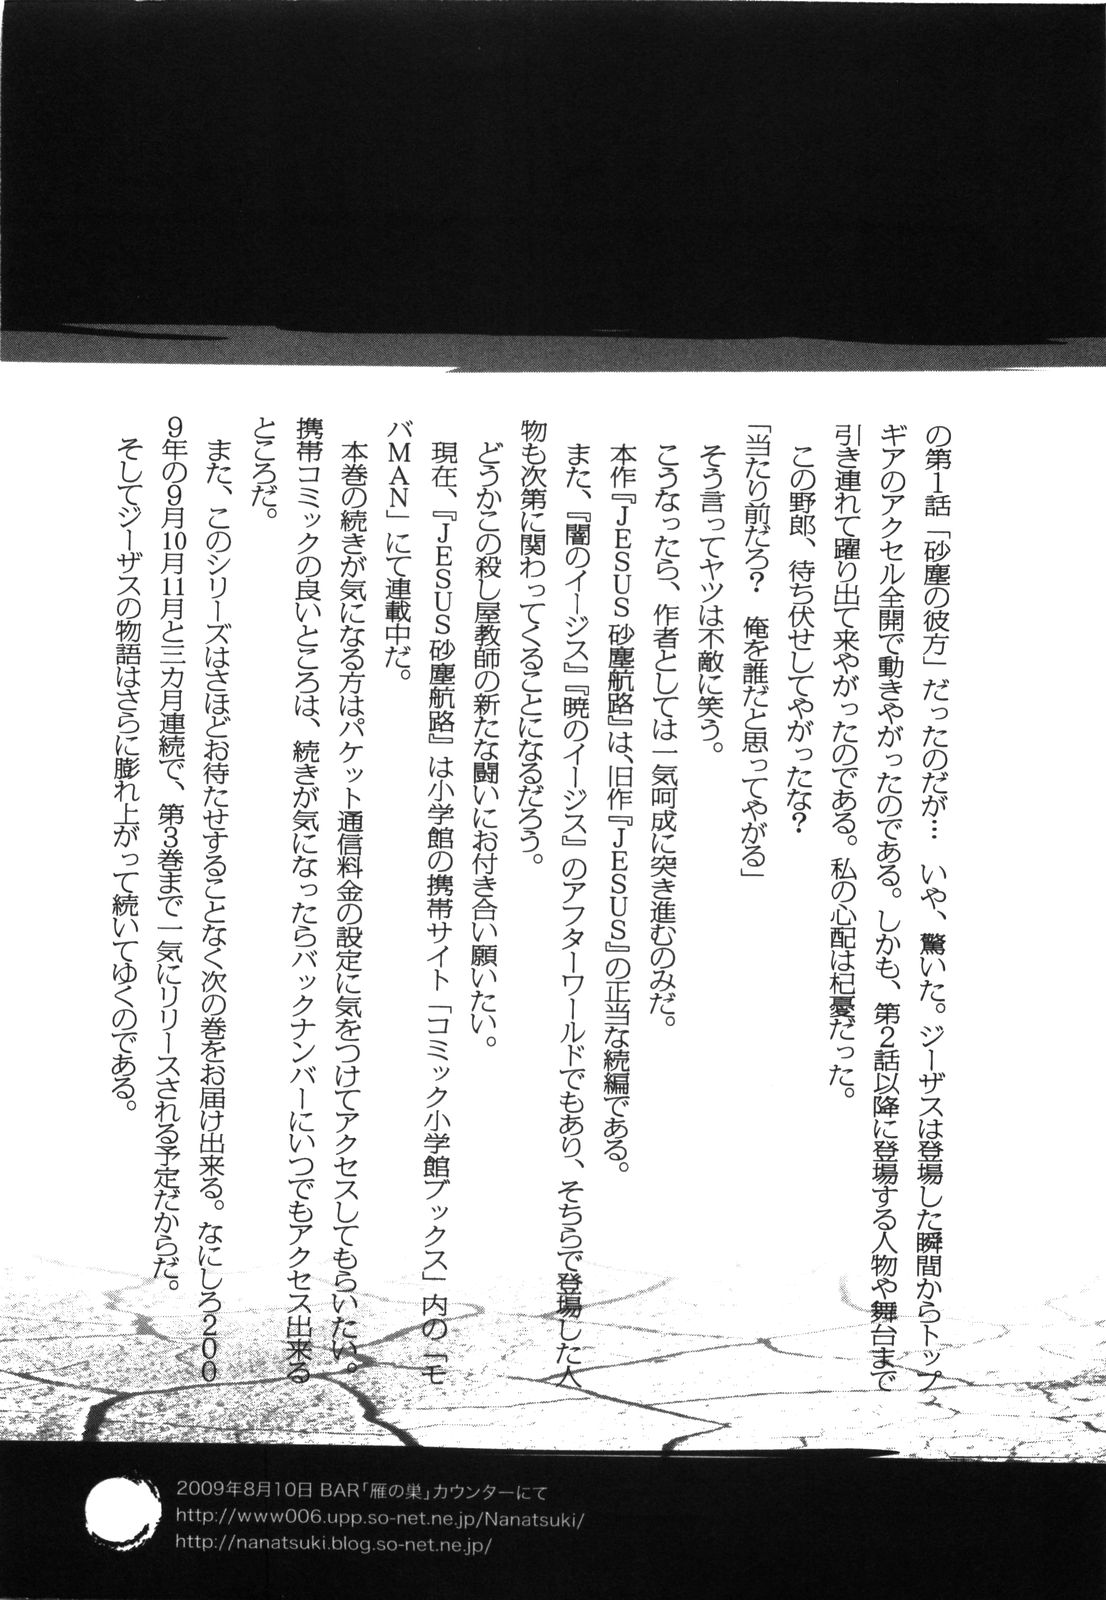 の第1話「砂塵の彼方」だったのだが… いや、驚いた。ジーザスは登場した瞬間からトップ
ギアのアクセル全開で動きやがったのである。しかも、第2話以降に登場する人物や舞台まで
引き連れて躍り出て来やがったのである。私の心配は杞憂だった。
この野郎、待ち伏せしてやがったな?
「当たり前だろ? 俺を誰だと思ってやがる」
そう言ってヤツは不敵に笑う。
こうなったら、作者としては一気呵成に突き進むのみだ。
本作『JESUS 砂塵航路』は、旧作『JESUS』の正当な続編である。
また、『闇のイージス』『暁のイージス』のアフターワールドでもあり、そちらで登場した人
物も次第に関わってくることになるだろう。
どうかこの殺し屋教師の新たな闘いにお付き合い願いたい。
現在、『JESUS 砂塵航路』は小学館の携帯サイト「コミック小学館ブックス」内の「モ
バMAN」にて連載中だ。
本巻の続きが気になる方はパケット通信料金の設定に気をつけてアクセスしてもらいたい。
携帯コミックの良いところは、続きが気になったらバックナンバーにいつでもアクセス出来る
ところだ。
また、このシリーズはさほどお待たせすることなく次の巻をお届け出来る。なにしろ200
9年の9月10月11月と三カ月連続で、第3巻まで一気にリリースされる予定だからだ。
そしてジーザスの物語はさらに膨れ上がって続いてゆくのである。
2009年8月10日 BAR「雁の巣」カウンターにて
http://www006.upp.so-net.ne.jp/Nanatsuki/
http://nanatsuki.blog.so-net.ne.jp/